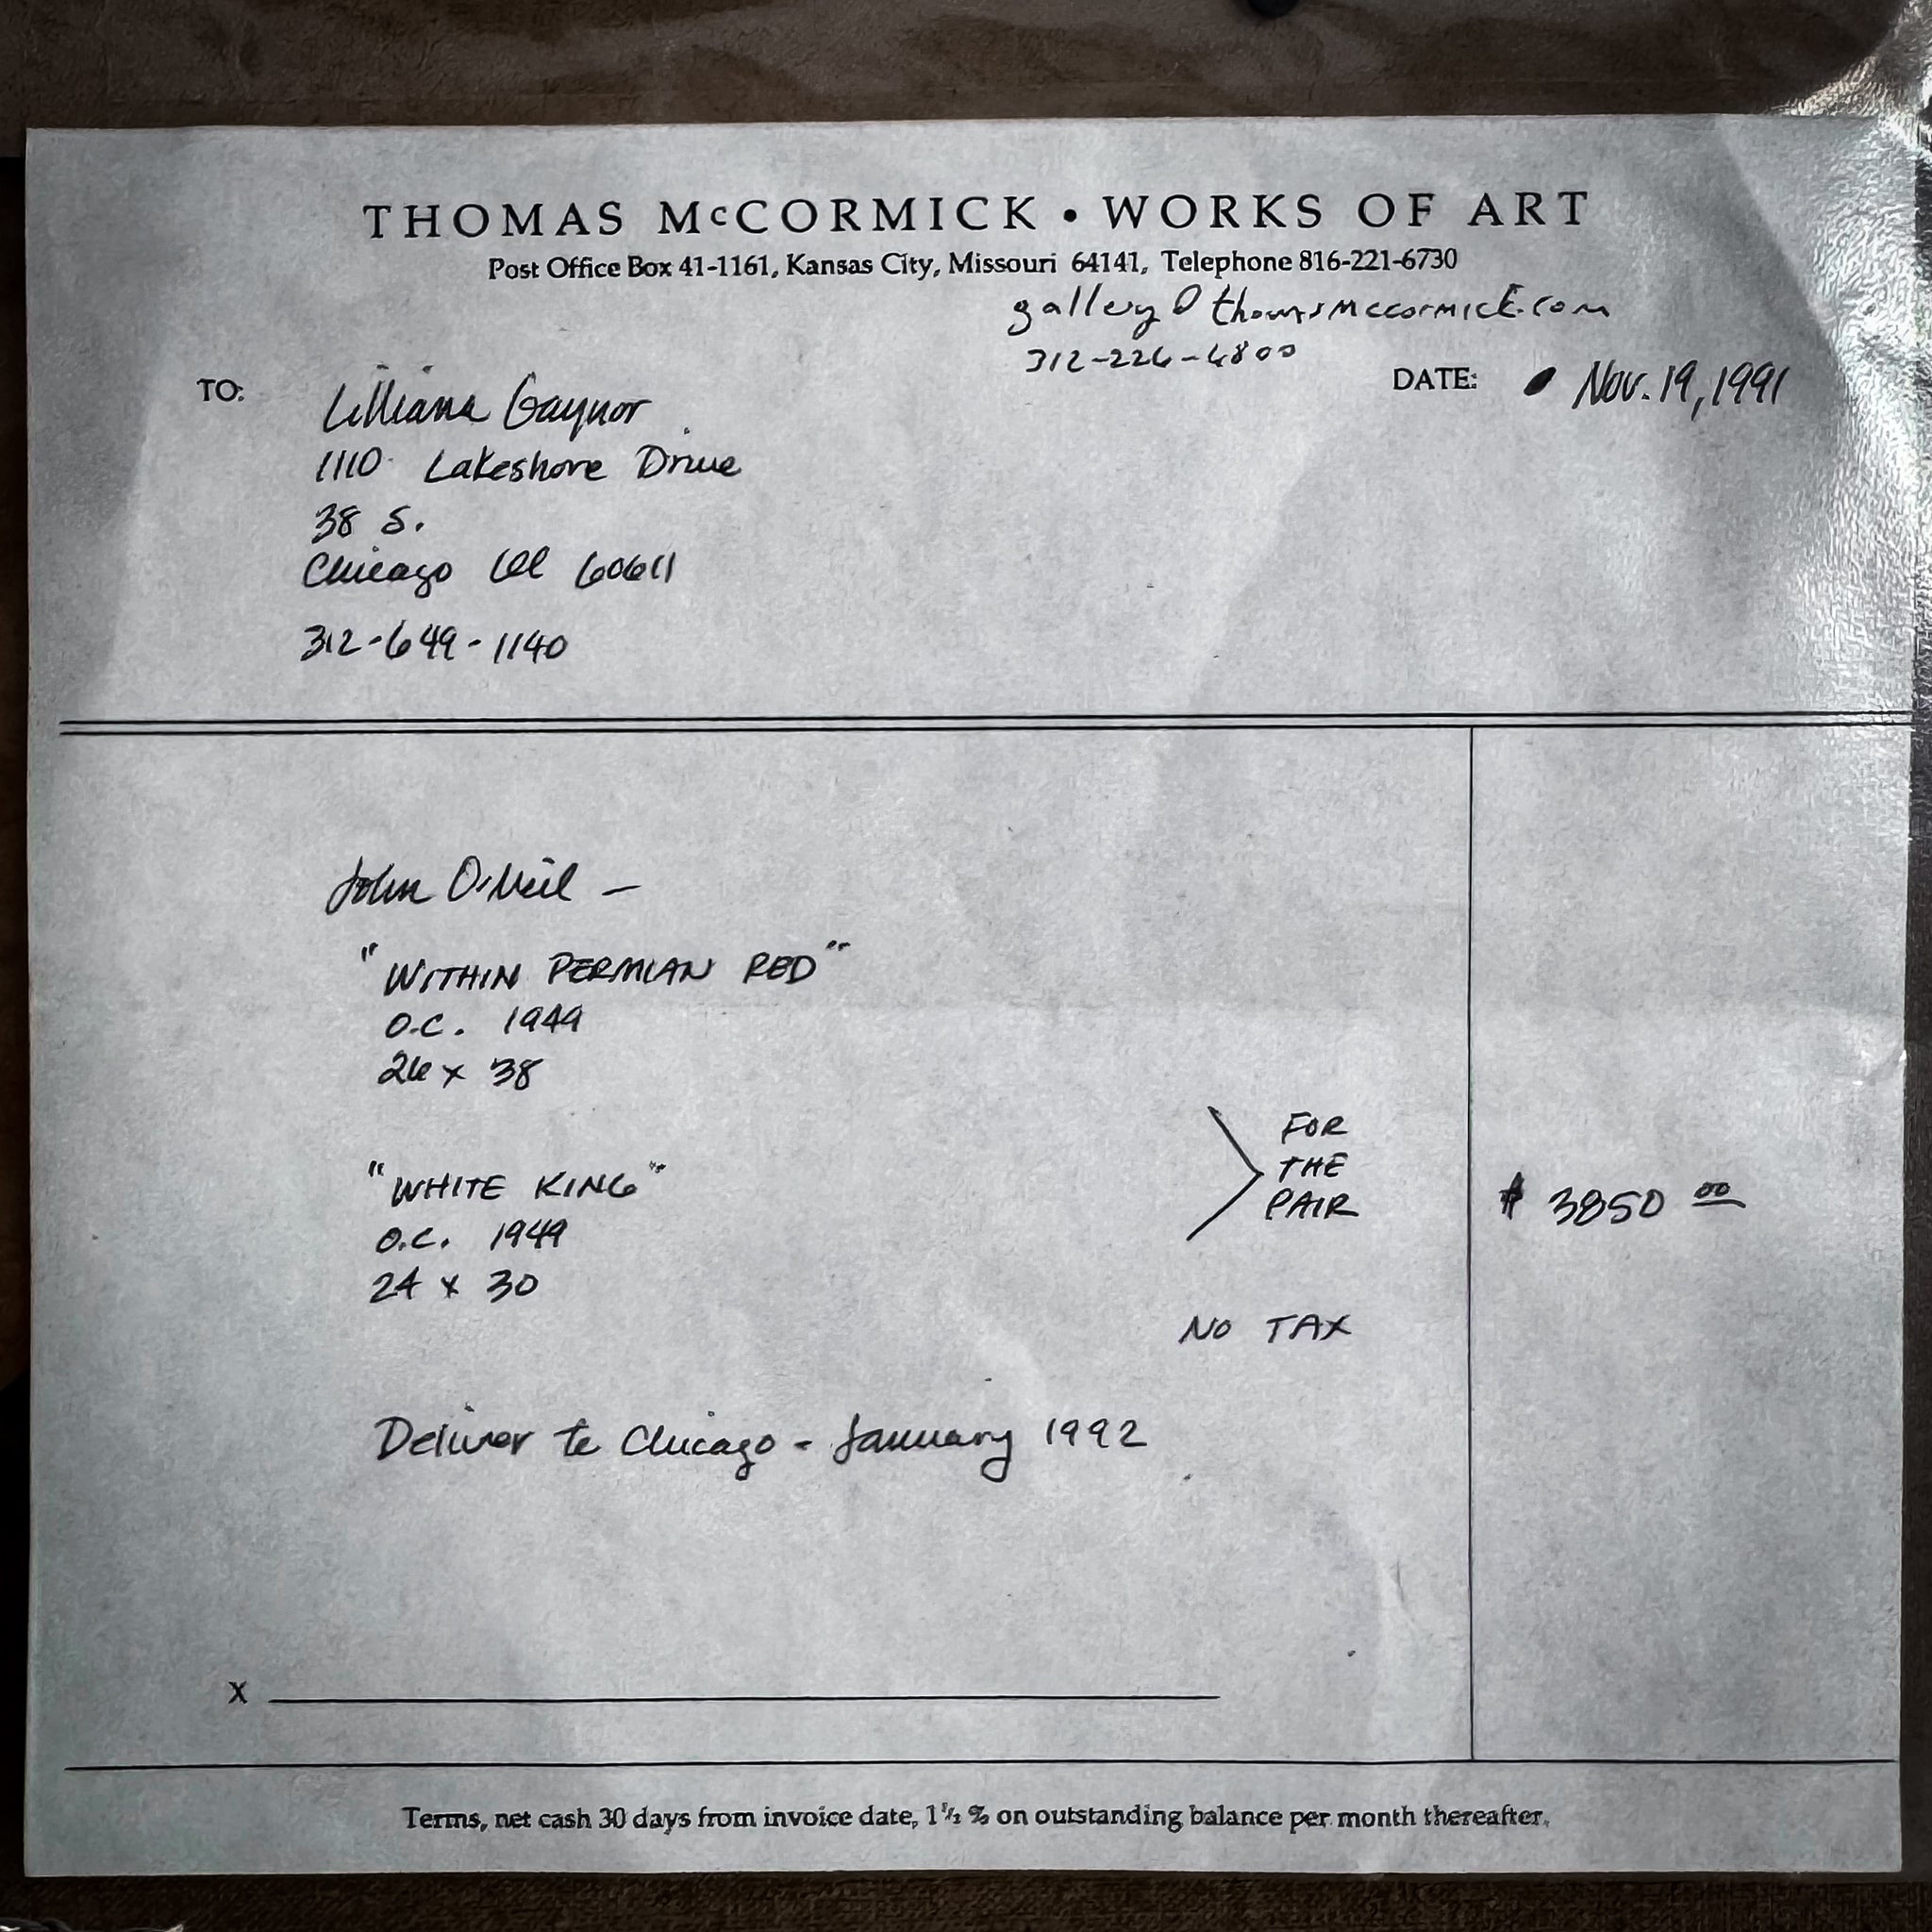 THOMAS McCORMICK • WORKS OF ART
Post Office Box 41-1161, Kansas City, Missouri 64141, Telephone 816-221-6730
gallery@thomasmccormick.com
312-226-6800
TO:
DATE: Nov. 19, 1991
Lilliana Gaynor
1110 Lakeshore Drive
38 S.
Chicago Ill 60611
312-649-1140
John O'Neil –
"WITHIN PERMIAN RED"
O.C. 1949
26 x 38
"WHITE KING"
O.C. 1949
24 x 30
FOR
THE
PAIR
$ 3850 00
NO TAX
Deliver to Chicago - January 1992
X
Terms, net cash 30 days from invoice date, 1 1/2 % on outstanding balance per month thereafter.